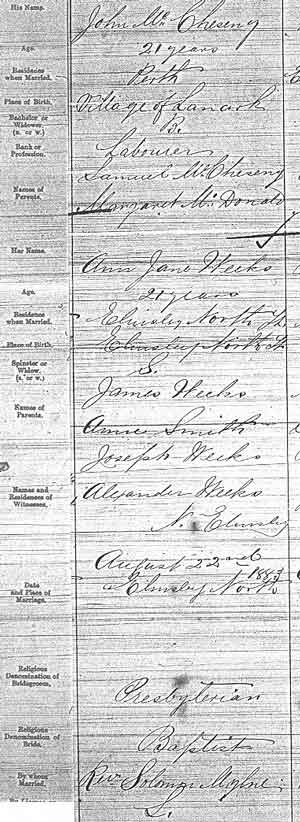 His Name.
John Mc Cheseng
Age.
21 years
Residence
when Married.
Perth
Place of Birth.
Village of Lanark
Bachelor or
Widower.
(B. or W.)
B.
Rank or
Profession.
Labourer
Names of
Parents.
Samuel McCheseng
Margaret McDonald
Her Name.
Ann Jane Weeks
Age.
21 years
Residence
when Married.
Elmsley North
Place of Birth.
Elmsley North
Spinster or
Widow.
(S. or W.)
S.
Names of
Parents.
James Weeks
Smith
Names and
Residences of
Witnesses.
Joseph Weeks
Alexander Weeks
N. Elmsley
Date
and Place of
Marriage.
August 22nd 1883
Elmsley North
Religious
Denomination of
Bridegroom.
Presbyterian
Religious
Denomination of
Bride.
Baptist
By whom
Married.
Rev. Solomon Mylne